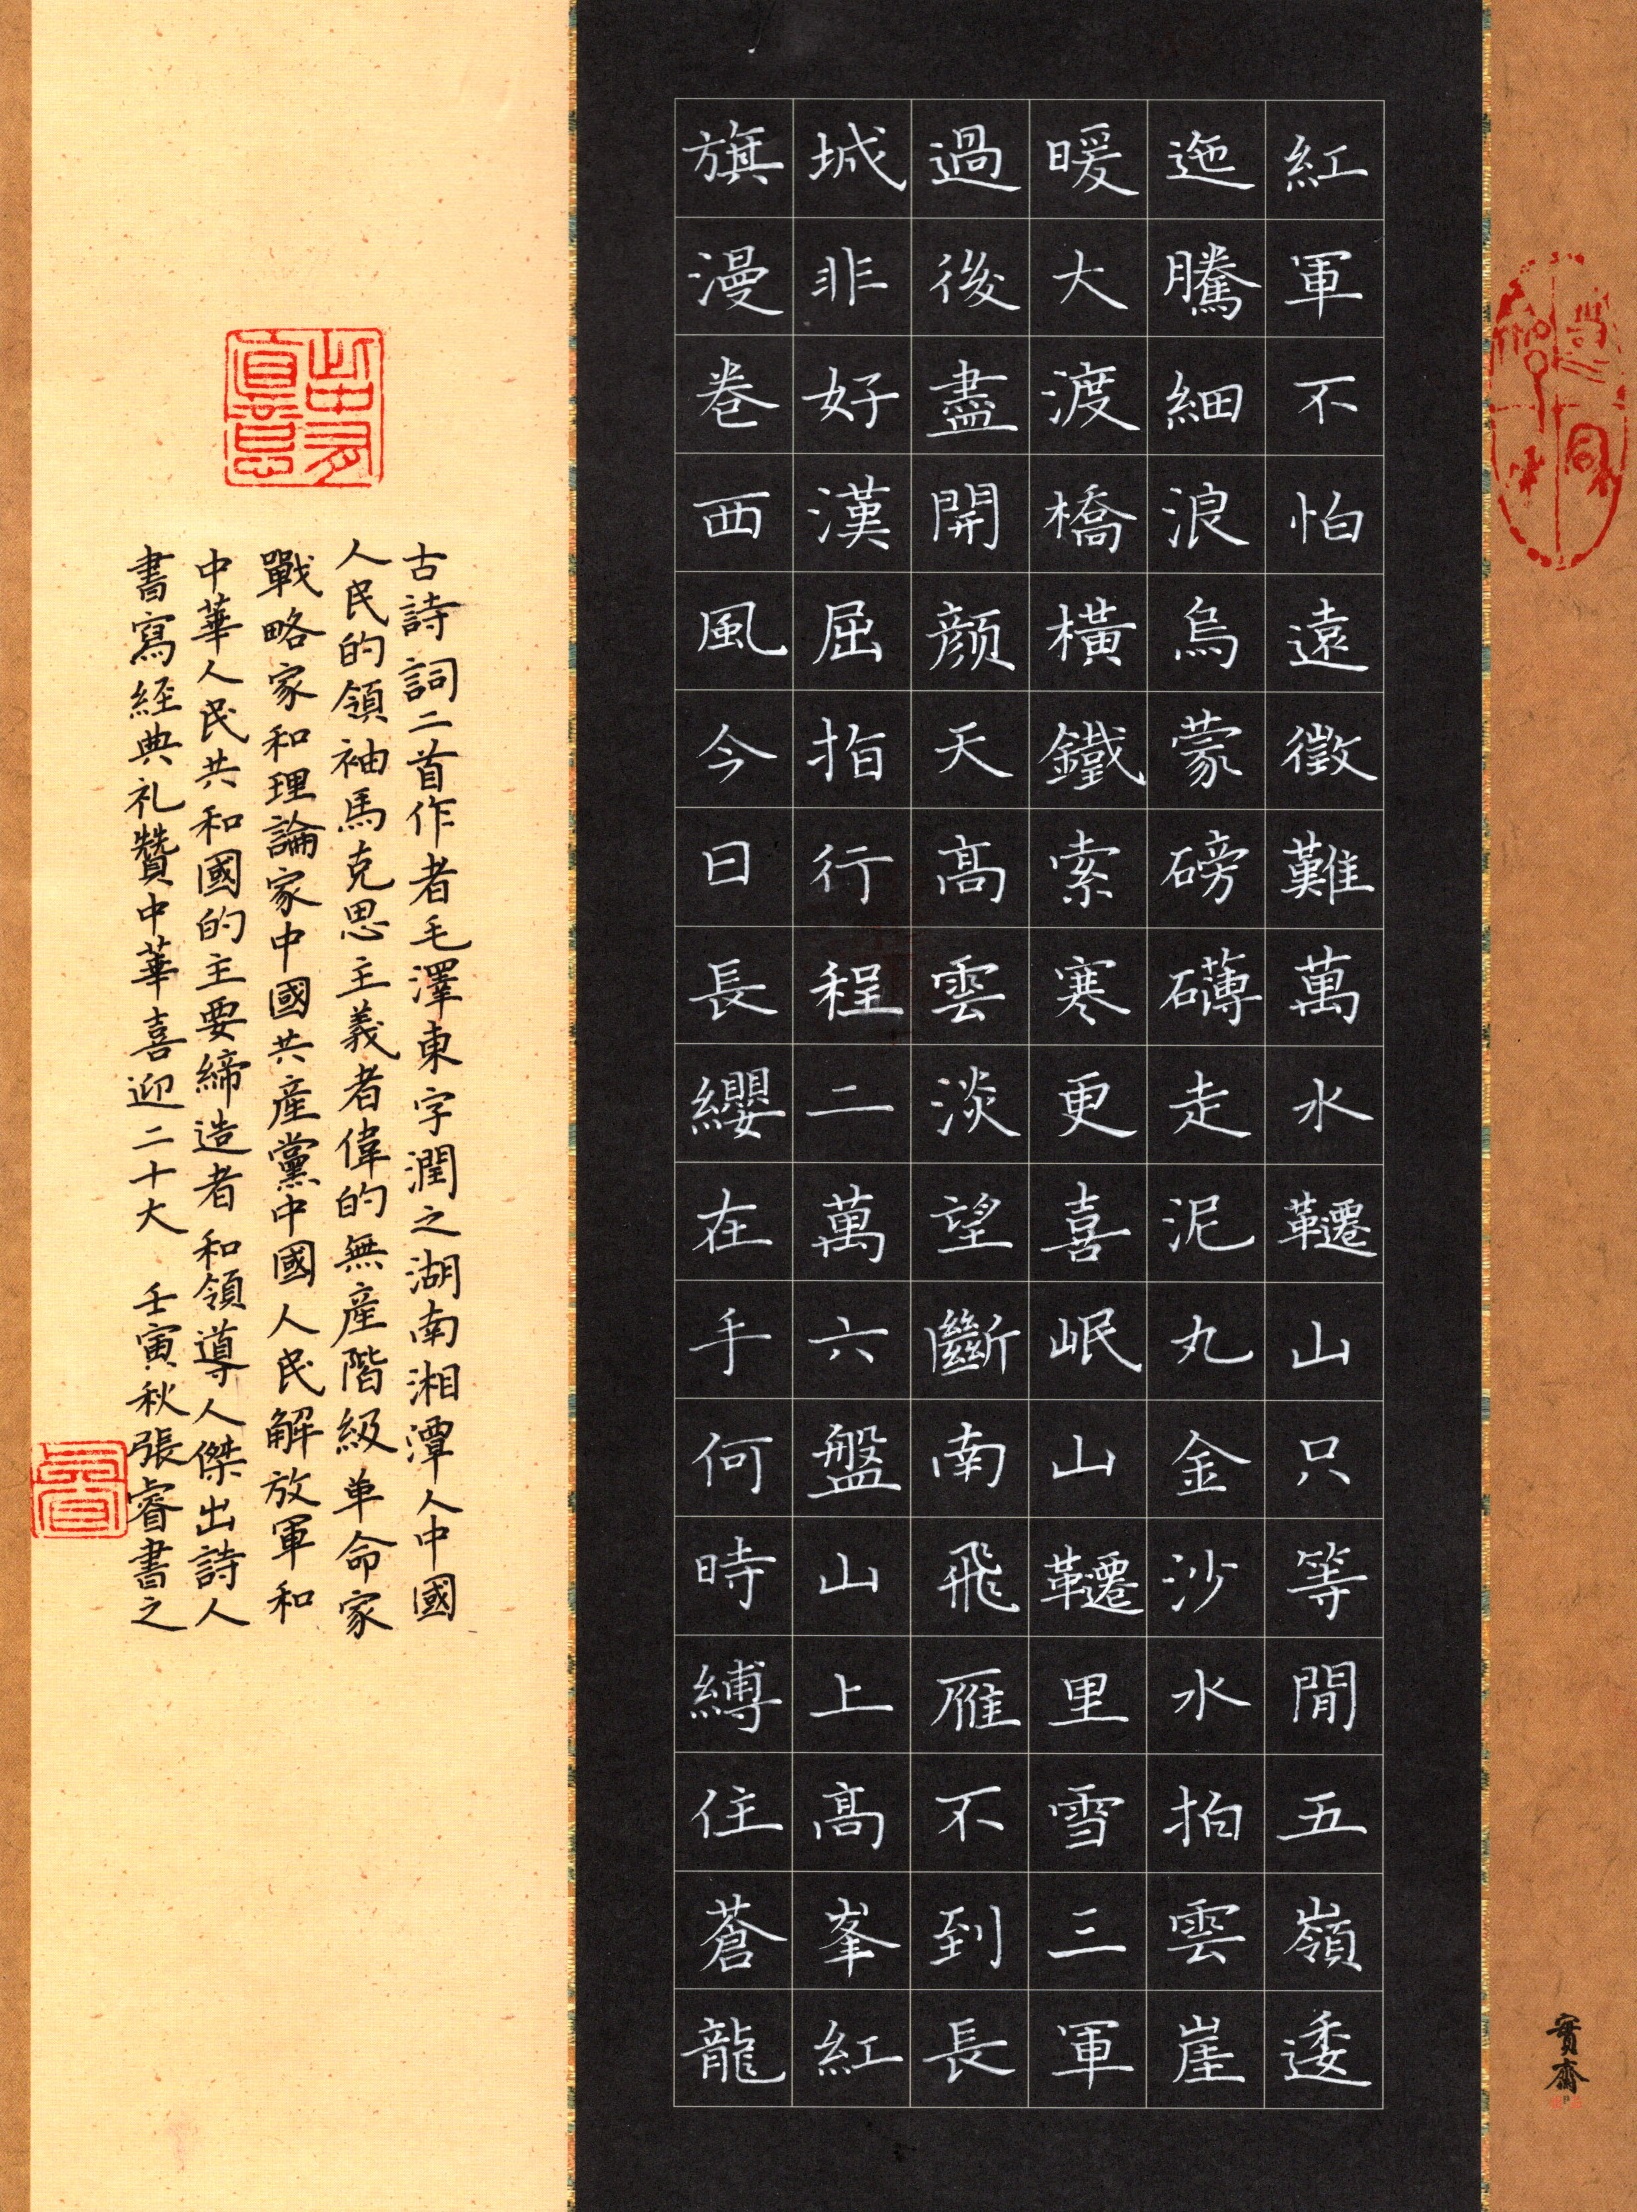 紅軍不怕遠徵難萬水韆山只等閒五嶺逶
迤騰細浪烏蒙磅礴走泥丸金沙水拍雲崖
暖大渡橋橫鐵索寒更喜岷山韆里雪三軍
過後盡開顏天高雲淡望斷南飛雁不到長
城非好漢屈指行程二萬六盤山上高峯紅
旗漫卷西風今日長纓在手何時縛住蒼龍
此中有真意
古詩詞二首作者毛澤東字潤之湖南湘潭人中國
人民的領袖馬克思主義者偉的無產階級革命家
戰略家和理論家中國共產黨中國人民解放軍和
中華人民共和國的主要締造者和領導人傑出詩人
書寫經典礼贊中華喜迎二十大 壬寅秋張睿書之